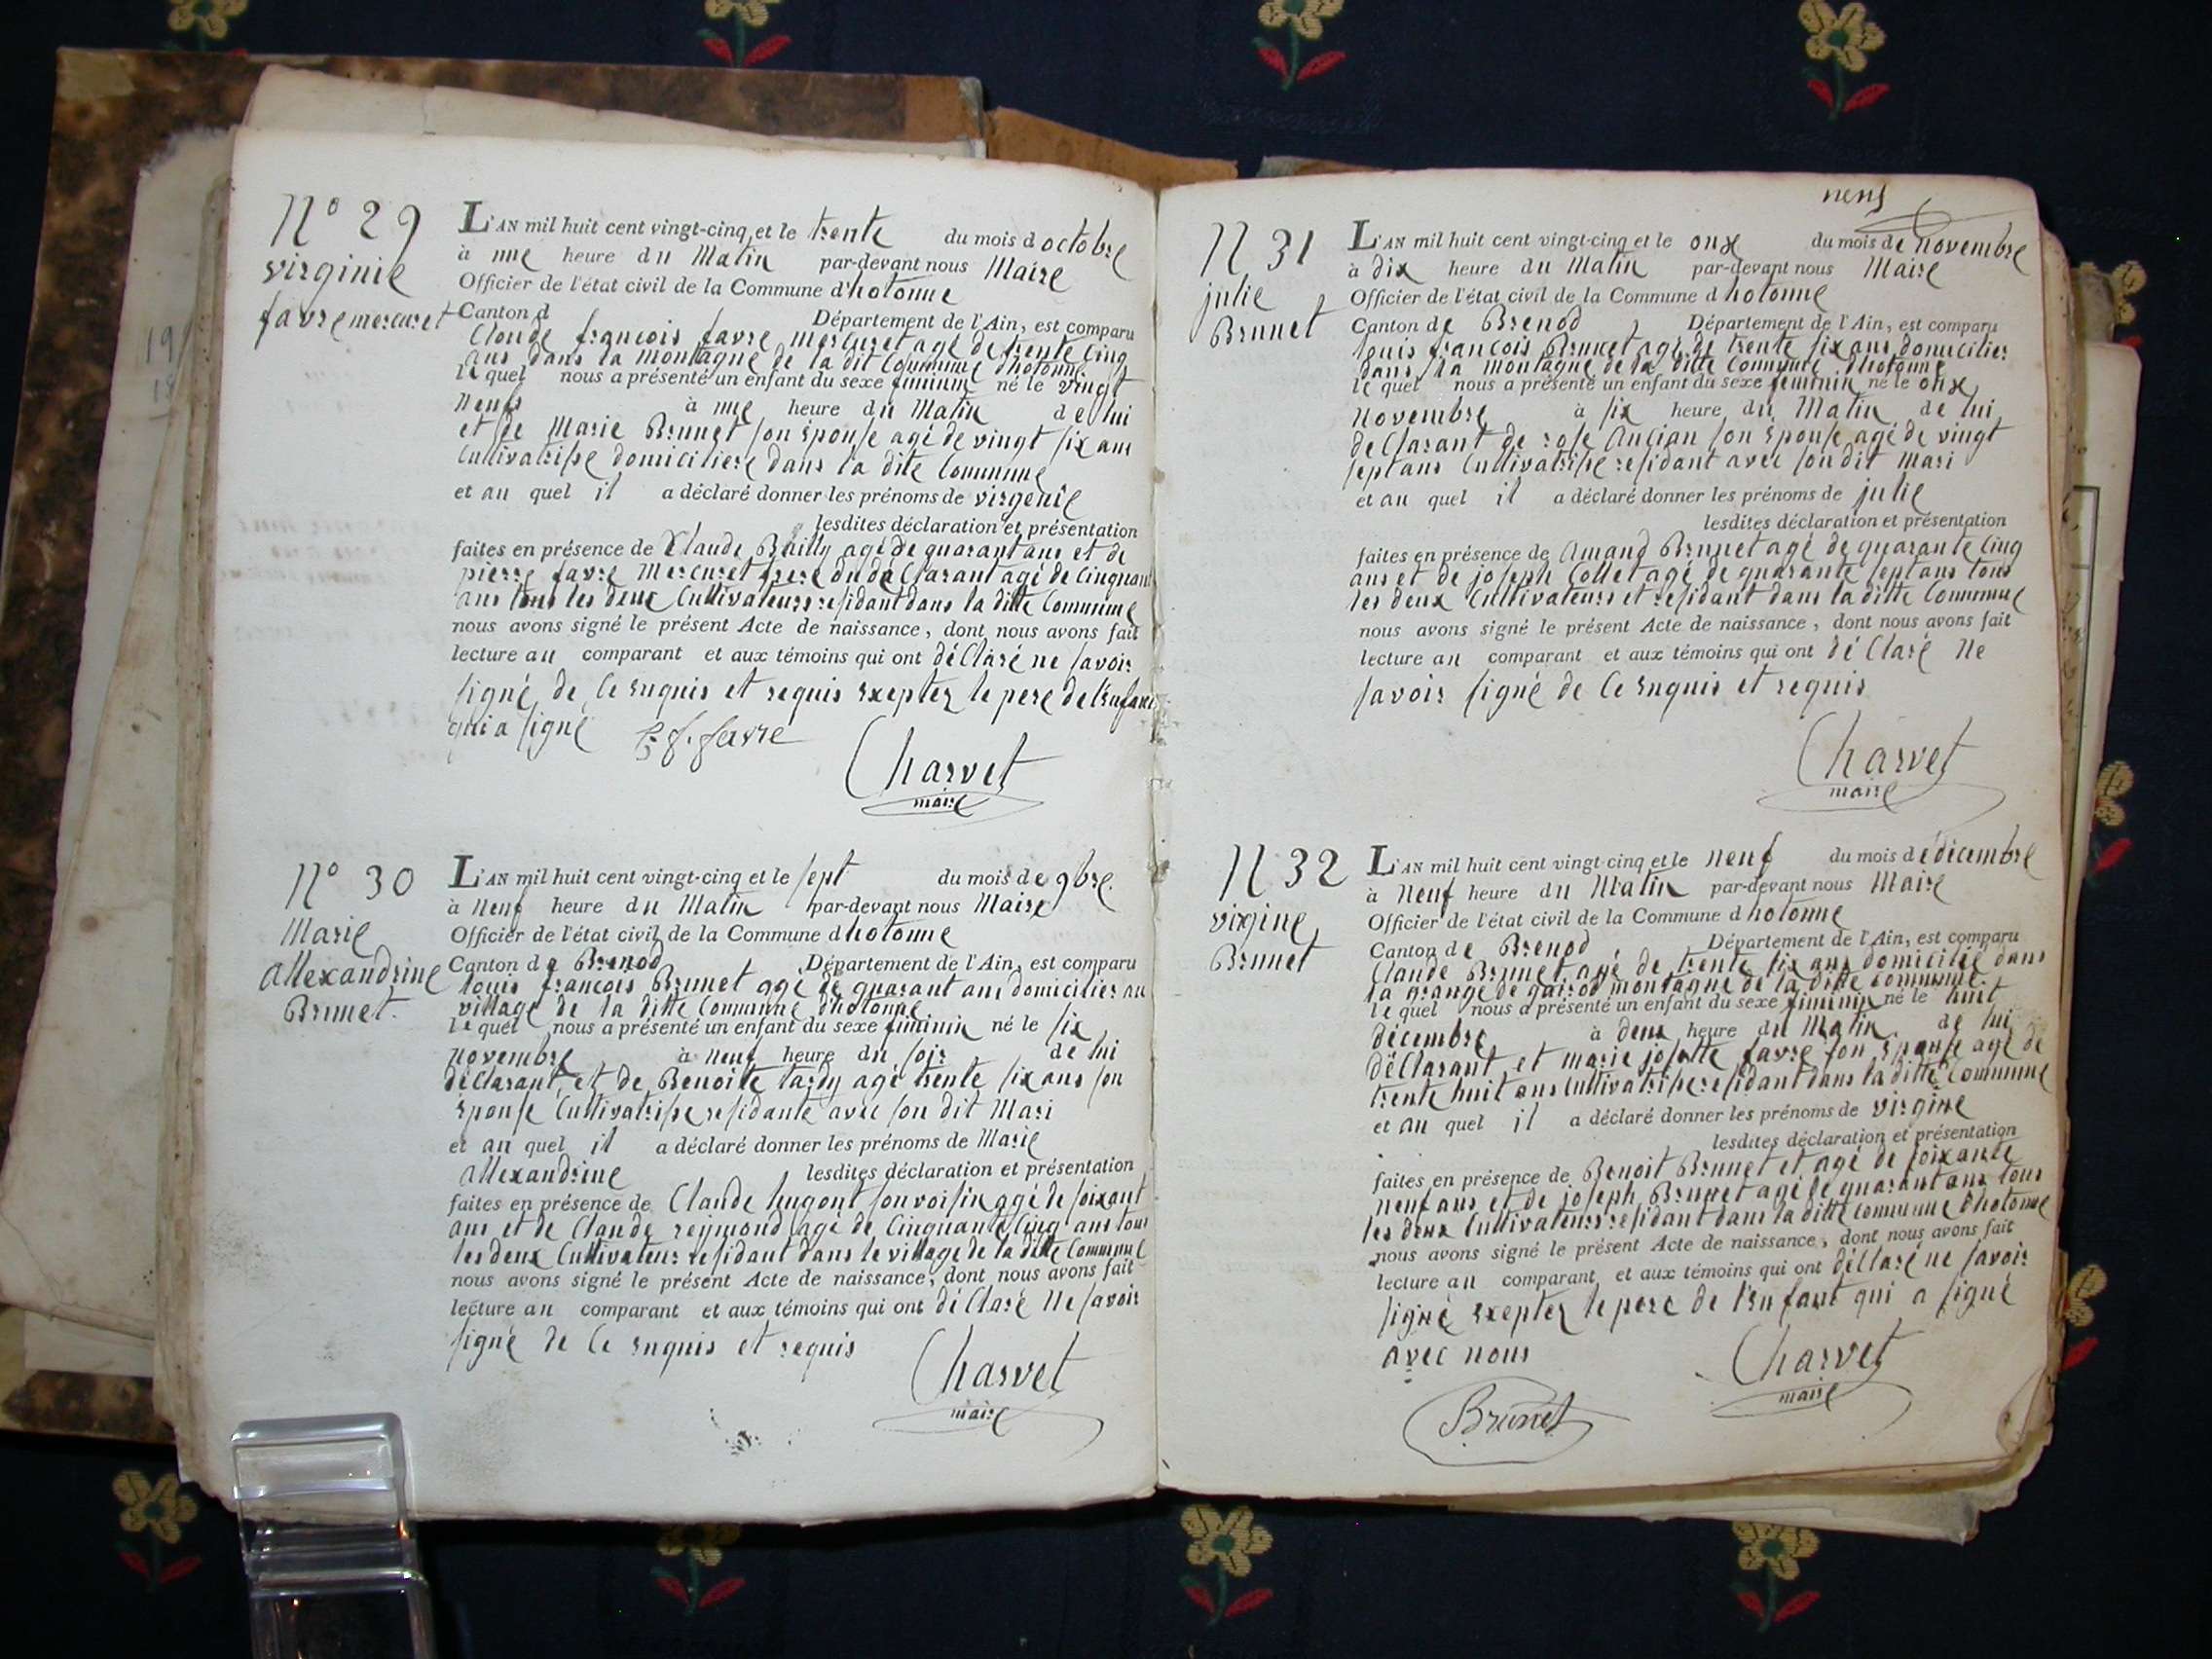 N° 29
virginie
favre mercuret
L'AN mil huit cent vingt-cinq et le trente du mois d octobre
à une heure du Matin par-devant nous Maire
Officier de l'état civil de la Commune d'hotonne
Canton d Département de l'Ain, est comparu
Claude francois favre mercuret agé de trente cinq
ans dans la montagne de la dit Commune d'hotonne
le quel nous a présenté un enfant du sexe féminin né le vingt
neuf à une heure du Matin de lui
et de Marie Brunet son épouse agé de vingt six ans
Cultivatrisse domiciliere dans la dite Commune
et au quel il a déclaré donner les prénoms de virgenie
lesdites déclaration et présentation
faites en présence de Claude Bailly agé de quarant ans et de
pierre favre Mercuret frere du déClarant agé de Cinquant
ans tous les deux Cultivateurs residant dans la ditte Commune
nous avons signé le présent Acte de naissance, dont nous avons fait
lecture au comparant et aux témoins qui ont déClaré ne savoir
signé de Ce enquis et requis exeptez le pere de l'enfant
qui a signé favre
Charvet
maire
N° 30
Marie
allexandrine
Brunet.
L'AN mil huit cent vingt-cinq et le sept du mois de 9bre.
à neuf heure du Matin par-devant nous Maire
Officier de l'état civil de la Commune d hotonne
Canton de Brenod Département de l'Ain, est comparu
louis francois Brunet agé de quarant ans domicilier au
village de la ditte Commune d'hotonne
le quel nous a présenté un enfant du sexe féminin né le six
novembre à neuf heure du soir de lui
déClarant, et de Benoitte tardy agé trente six ans son
épouse Cultivatrisse residante avec son dit Mari
et au quel il a déclaré donner les prénoms de Marie
allexandrine lesdites déclaration et présentation
faites en présence de Claude hugont son voisin agé de soixant
ans et de Claude reymond agé de Cinquante Cinq ans tous
les deux Cultivateur residant dans le village de la ditte Commune
nous avons signé le présent Acte de naissance, dont nous avons fait
lecture au comparant et aux témoins qui ont déClaré Ne savoir
signé de Ce enquis et requis
Charvet
maire
neuf
N 31
julie
Brunet
L'AN mil huit cent vingt-cinq et le onze du mois de novembre
à dix heure du Matin par-devant nous Maire
Officier de l'état civil de la Commune d hotonne
Canton de Brenod Département de l'Ain, est comparu
louis francois Brunet agé de trente six ans domicilier
dans la montagne de la ditte Commune d'hotonne
le quel nous a présenté un enfant du sexe féminin né le onze
novembre à six heure du Matin de lui
deClarant de rose Ancian son épouse agé de vingt
sept ans Cultivatrisse residant avec son dit Mari
et au quel il a déclaré donner les prénoms de julie
lesdites déclaration et présentation
faites en présence de Amand Brunet agé de quarante Cinq
ans et de joseph Collet agé de quarante sept ans tous
les deux Cultivateurs et residant dans la ditte Commune
nous avons signé le présent Acte de naissance, dont nous avons fait
lecture au comparant et aux témoins qui ont déClaré Ne
savoir signé de Ce enquis et requis
Charvet
maire
N 32
virgine
Brunet
L'AN mil huit cent vingt-cinq et le neuf du mois de décembre
à Neuf heure du Matin par-devant nous Maire
Officier de l'état civil de la Commune d hotonne
Canton de Brenod Département de l'Ain, est comparu
Claude Brunet agé de trente six ans domicilié dans
la grange de montagne de la ditte commune
le quel nous a présenté un enfant du sexe féminin né le huit
décembre à deux heure du Matin de lui
déClarant et marie josette favre son épouse agé de
trente huit ans Cultivatrisse residant dans la ditte Commune
et au quel il a déclaré donner les prénoms de virgine
lesdites déclaration et présentation
faites en présence de Benoit Brunet et agé de soixante
neuf ans et de joseph Brunet agé de quarant ans tous
les deux Cultivateurs residant dans la ditte commune d'hotonne
nous avons signé le présent Acte de naissance, dont nous avons fait
lecture au comparant et aux témoins qui ont déClaré ne savoir
signé exeptez le pere de l'enfant qui a signé
avec nous Charvet
maire
Brunet